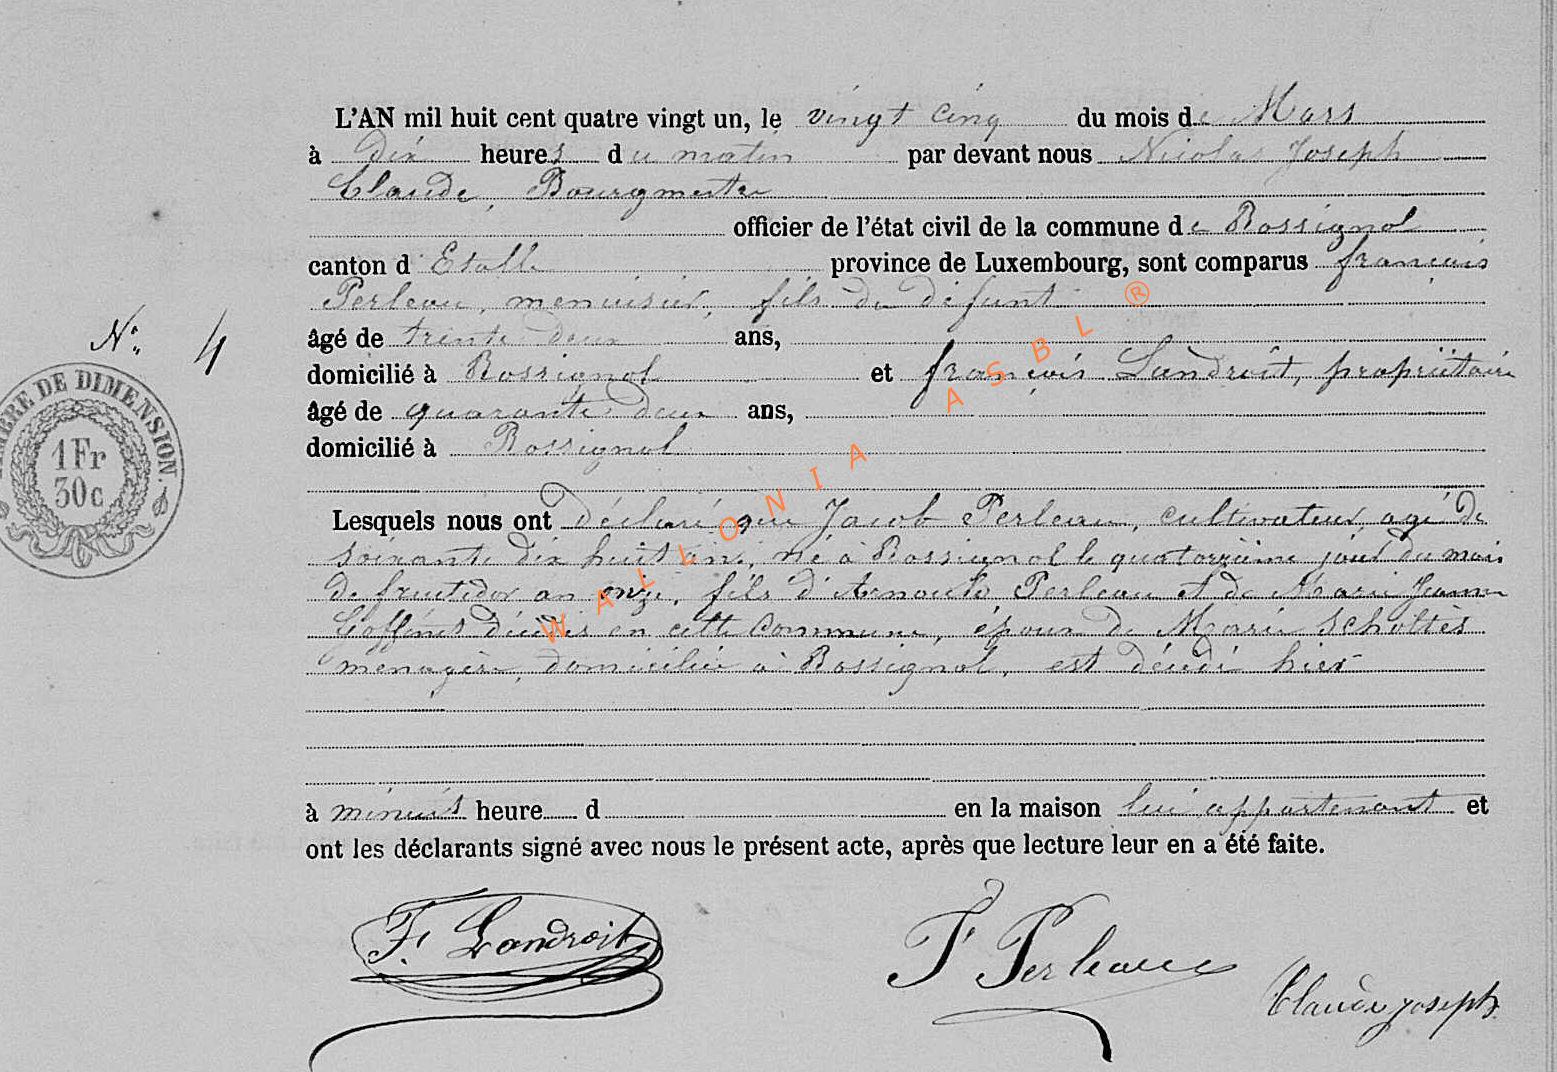 L'AN mil huit cent quatre vingt un, le vingt cinq du mois de Mars
à dix heures du matin par devant nous Nicolas Joseph
Claude, Bourgmestre
officier de l'état civil de la commune de Rossignol
canton d'Etalle province de Luxembourg, sont comparus françois
Perleau, menuisier, fils du défunt
âgé de trente deux ans,
domicilié à Rossignol et françois Landroit, propriétaire
âgé de quarante deux ans,
N° 4
domicilié à Rossignol
TIMBRE DE DIMENSION.
1 Fr
30 c
Lesquels nous ont déclaré que Jacob Perleau, cultivateur, agé de
soixante dix huit ans, né à Rossignol le quatorzième jour du mois
de fructidor an onze, fils d'Arnould Perleau et de Marie Jeanne
Goffinet décédés en cette commune, époux de Marie Scholtès
menagère, domiciliée à Rossignol, est décédé hier
à minuit heure d en la maison lui appartenant et
ont les déclarants signé avec nous le présent acte, après que lecture leur en a été faite.
F. Landroit
F Perleau
Claude Joseph
WALLONIA ASBL ®